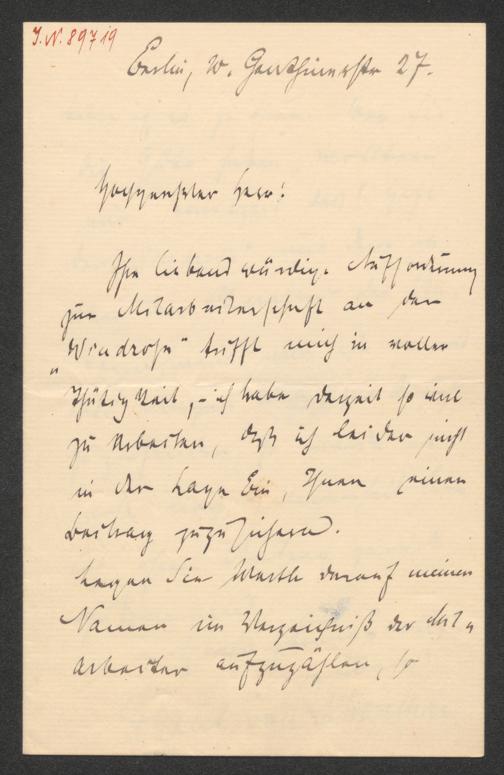 J.N. 89719
Berlin, W. Genthinerstr 27.
Hochgeehrter Herr!
Ihre liebenswürdige Aufforderung
zur Mitarbeiterschaft an der
"Windrose" trifft mich in voller
Thätigkeit, - ich habe derzeit so viel
zu arbeiten, daß ich leider nicht
in der Lage bin, Ihnen einen
Beitrag zuzusichern.
Legen Sie Werth darauf meinen
Namen im Verzeichniß der Mit=
arbeiter aufzuzählen, so